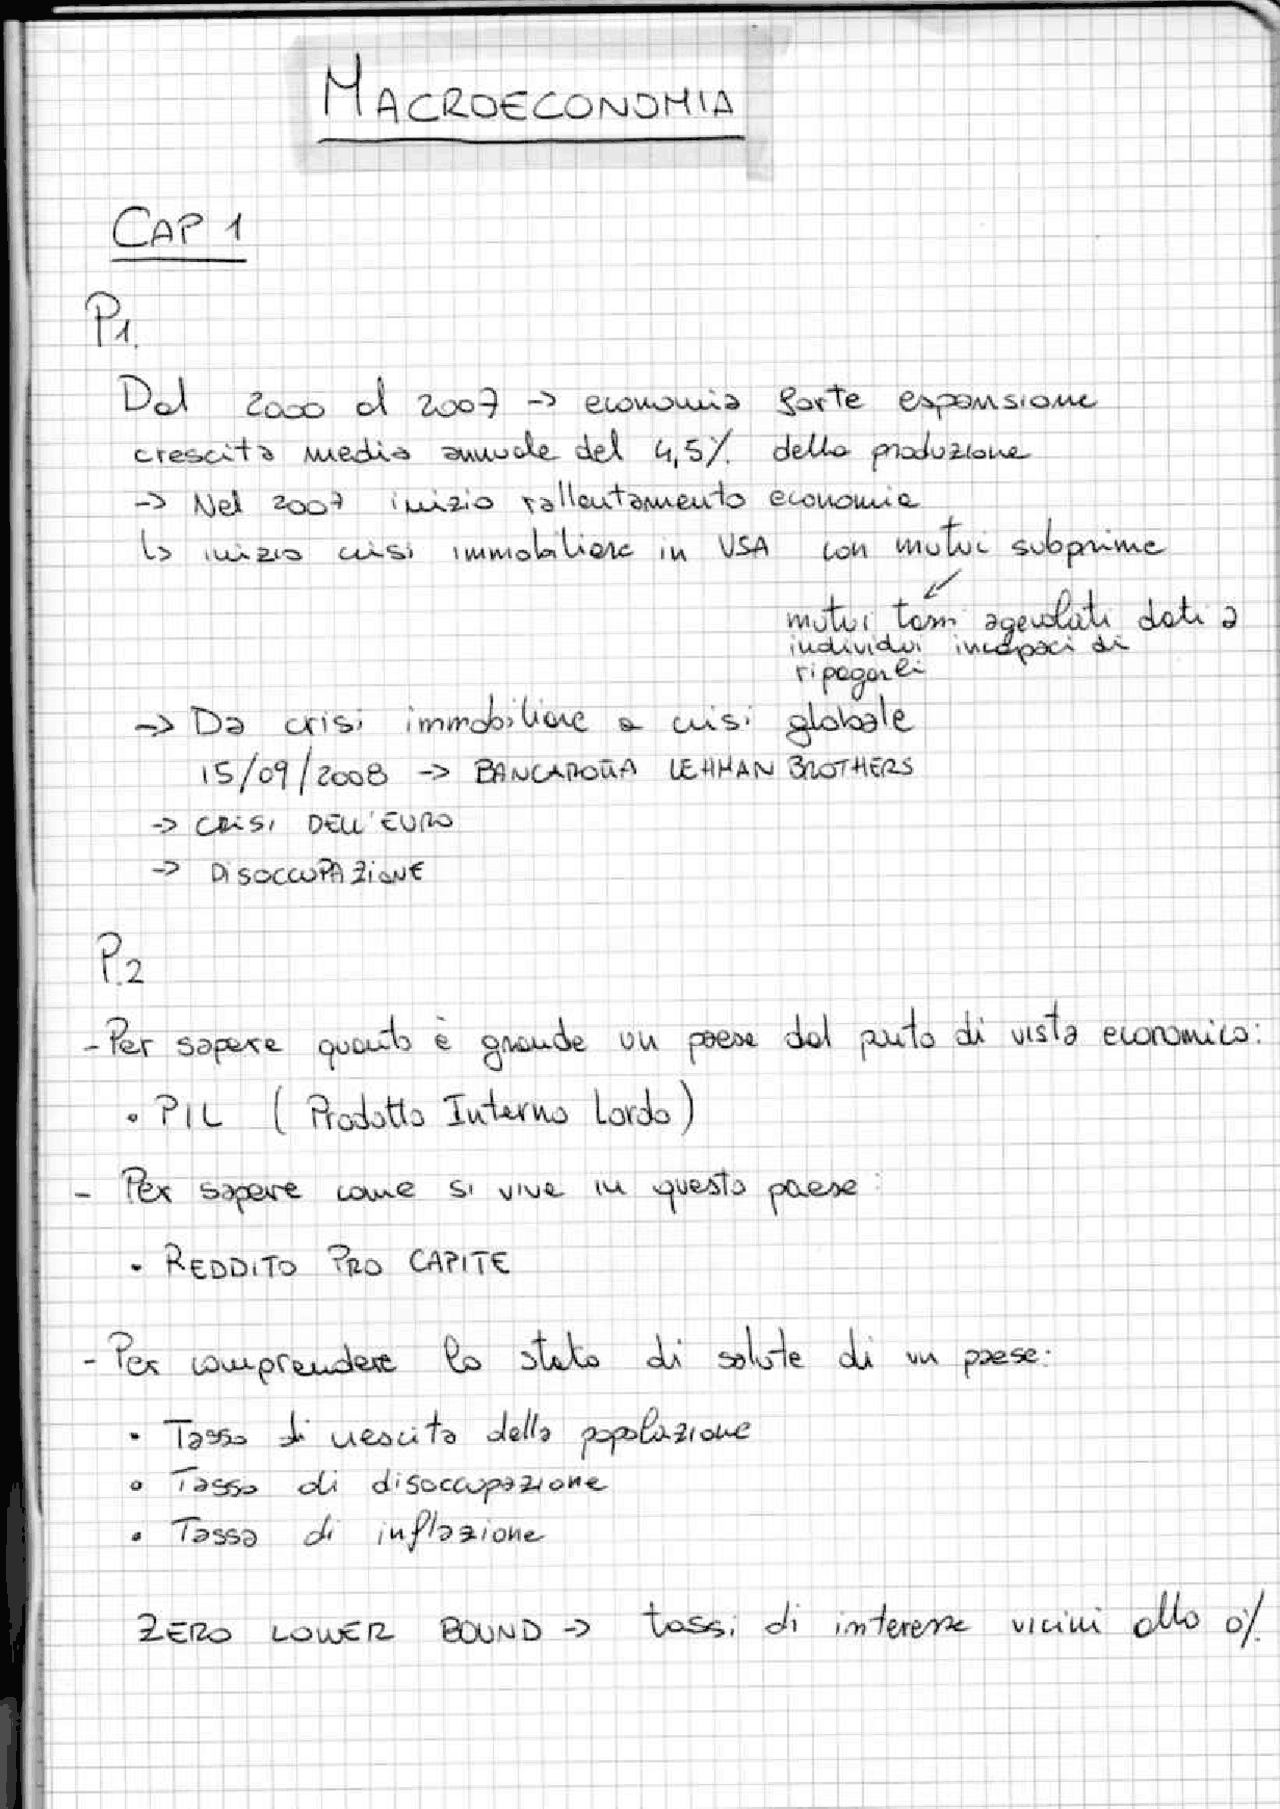 MACROECONOMIA
CAP 1
P1.
Dal 2000 al 2007 -> economia forte espansione
crescita media annuale del 4,5% della produzione
-> Nel 2007 inizio rallentamento economia
↳ inizio crisi immobiliare in USA con mutui subprime
mutui tassi agevolati dati a
individui incapaci di
ripagarli
-> Da crisi immobiliare a crisi globale
15/09/2008 -> BANCAROTTA LEHMAN BROTHERS
-> CRISI DELL'EURO
-> DISOCCUPAZIONE
P.2
- Per sapere quanto è grande un paese dal punto di vista economico:
• PIL (Prodotto Interno Lordo)
- Per sapere come si vive in questo paese:
• REDDITO PRO CAPITE
- Per comprendere lo stato di salute di un paese:
• Tasso di crescita della popolazione
• Tasso di disoccupazione
• Tasso di inflazione
ZERO LOWER BOUND -> tassi di interesse vicini allo 0%